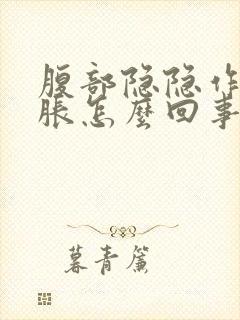 腹部隐隐作
胀怎麽回事
暮青簾